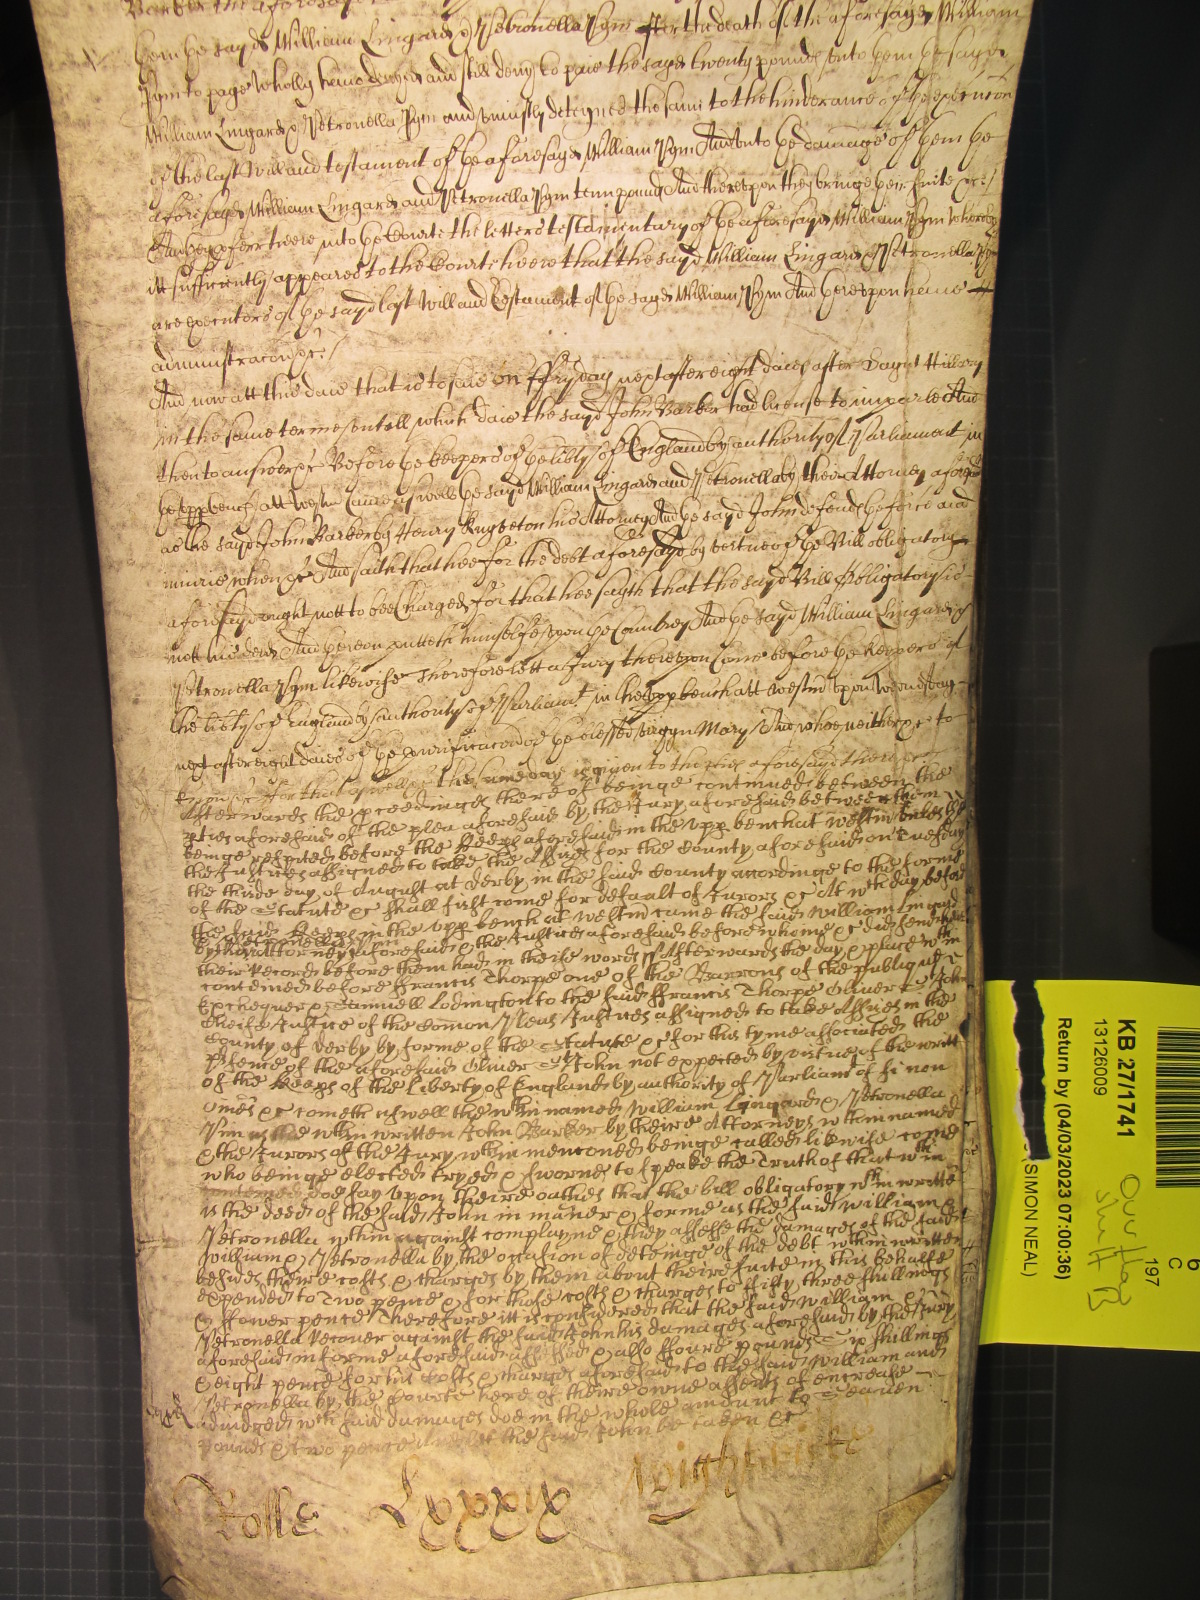 Barker the aforesaid
them the sayd William Lingard & Petronella Pym after the death of the aforesayd William
Pym to paye wholly have denyed and still deny to paie the sayd twenty pounds unto them the sayd
William Lingard & Petronella Pym and uniustly deteyned the same to the hinderance of the execution
of the last will and testament of the aforesayd William Pym And unto the damage of them the
aforesayd William Lingard and Petronella Pym tenn pounds And thereupon they bringe their suite &c /
And they offerr heere into the Courte the letters testamentary of the aforesayd William Pym whereby
itt sufficiently appeares to the Courte heere that the sayd William Lingard & Petronella Pym
are executors of the sayd last will and testament of the sayd William Pym And thereupon have
administracon &c /
And now att this daie that is to saie on ffryday next after eight daies after Saynt Hillary
in the same terme untill which daie the sayd John Barker had licence to imparle And
then to answer &c Before the keepers of the libty of England by authority of Parliament in
the upp bench att Westm came aswell the sayd William Lingard and Petronella by their Attorney aforesayd
as the sayd John Barker by Henry his Attorney And the sayd John defends the force and
iniurie when &c And saith that hee for the debt aforesayd by vertue of the Bill obligatory
aforesayd ought nott to bee Charged for that hee sayth that the sayd Bill Obligatory is
nott his deed And thereon putteth himselfe upon the Countrey And the sayd William Lingard &
Petronella Pym likewise Therefore lett a Jury thereupon come before the keepers of
the libty of England by authority of Parliamt in the upp bench att Westm upon Wensday
next after eight daies of the purificacon of the blessed virgyn Mary And who neither &c to
&c for that aswell &c the same day is given to the pties aforesayd there &c
Afterwards the proceedings thereof beinge continued betweene the
pties aforesaid of the plea aforesaid by the Jury aforesaid betweene them
beinge respited before the Keeps aforesaid in the upp bench at westm unles
the Justices assigned to take the Assises for the County aforesaid on Tuesday
the thirde day of August at Derby in the said County accordinge to the forme
of the Statute &c shall first come for default of Jurors &c At wch day before
the said Keeps in the upp bench at westm came the said William Lingard
& Petronella Pym
by their Attorney aforesaid & the Justices aforesaid before whome &c did send
their Record before them had in theise words ss Afterwards the day & place wthin
contened before ffrancis Thorpe one of the Barrons of the publique
Exchequer & Samuell Lodington to the said ffrancis Thorpe Oliver St John
Cheife Justice of the Comon Pleas Justices assigned to take Assises in the
County of Derby by forme of the Statute &c for this tyme associated the
psence of the aforesaid Oliver St John not expected by virtue of the writt
of the Keeps of the Liberty of England by authority of Parliamt of si non
omes &c cometh aswell the wthin named William Lingard & Petronella
Pim as the wthin written John Barker by theire Attorneys wthin named
& the Jurors of the Jury wthin menconed beinge called likewise come
who beinge elected tryed & sworne to speake the Truth of that wthin
contened doe say upon theire oathes that the bill obligatory wthin written
is the deed of the said John in maner & forme as the said William &
Petronella wthin against complayne & they assesse the damages of the said
William & Petronella by the ocasion of deteinge of the debt wthin written
besides theire costs & charges by them about theire suite in this behalfe
expended to Two pence & for those costs & charges to fifty three shillings
& ffower pence Therefore itt is considered that the said William &
Petronella Recover against the said John his damages aforesaid by the Jury
aforesaid in forme aforesaid assessed & also foure pounds Six shillings
& eight pence for his costs & charges aforesaid to the said William and
Petronella by the Courte here of theire owne assents of encrease
adiudged wch said damages doe in the whole amount to Seaven
pounds & two pence And lett the said John be taken &c
Rolle Lxxxix Wightwicke
KB 27/1741
13126009
Return by (04/03/2023 07:00:36)
(SIMON NEAL)
197
C
6